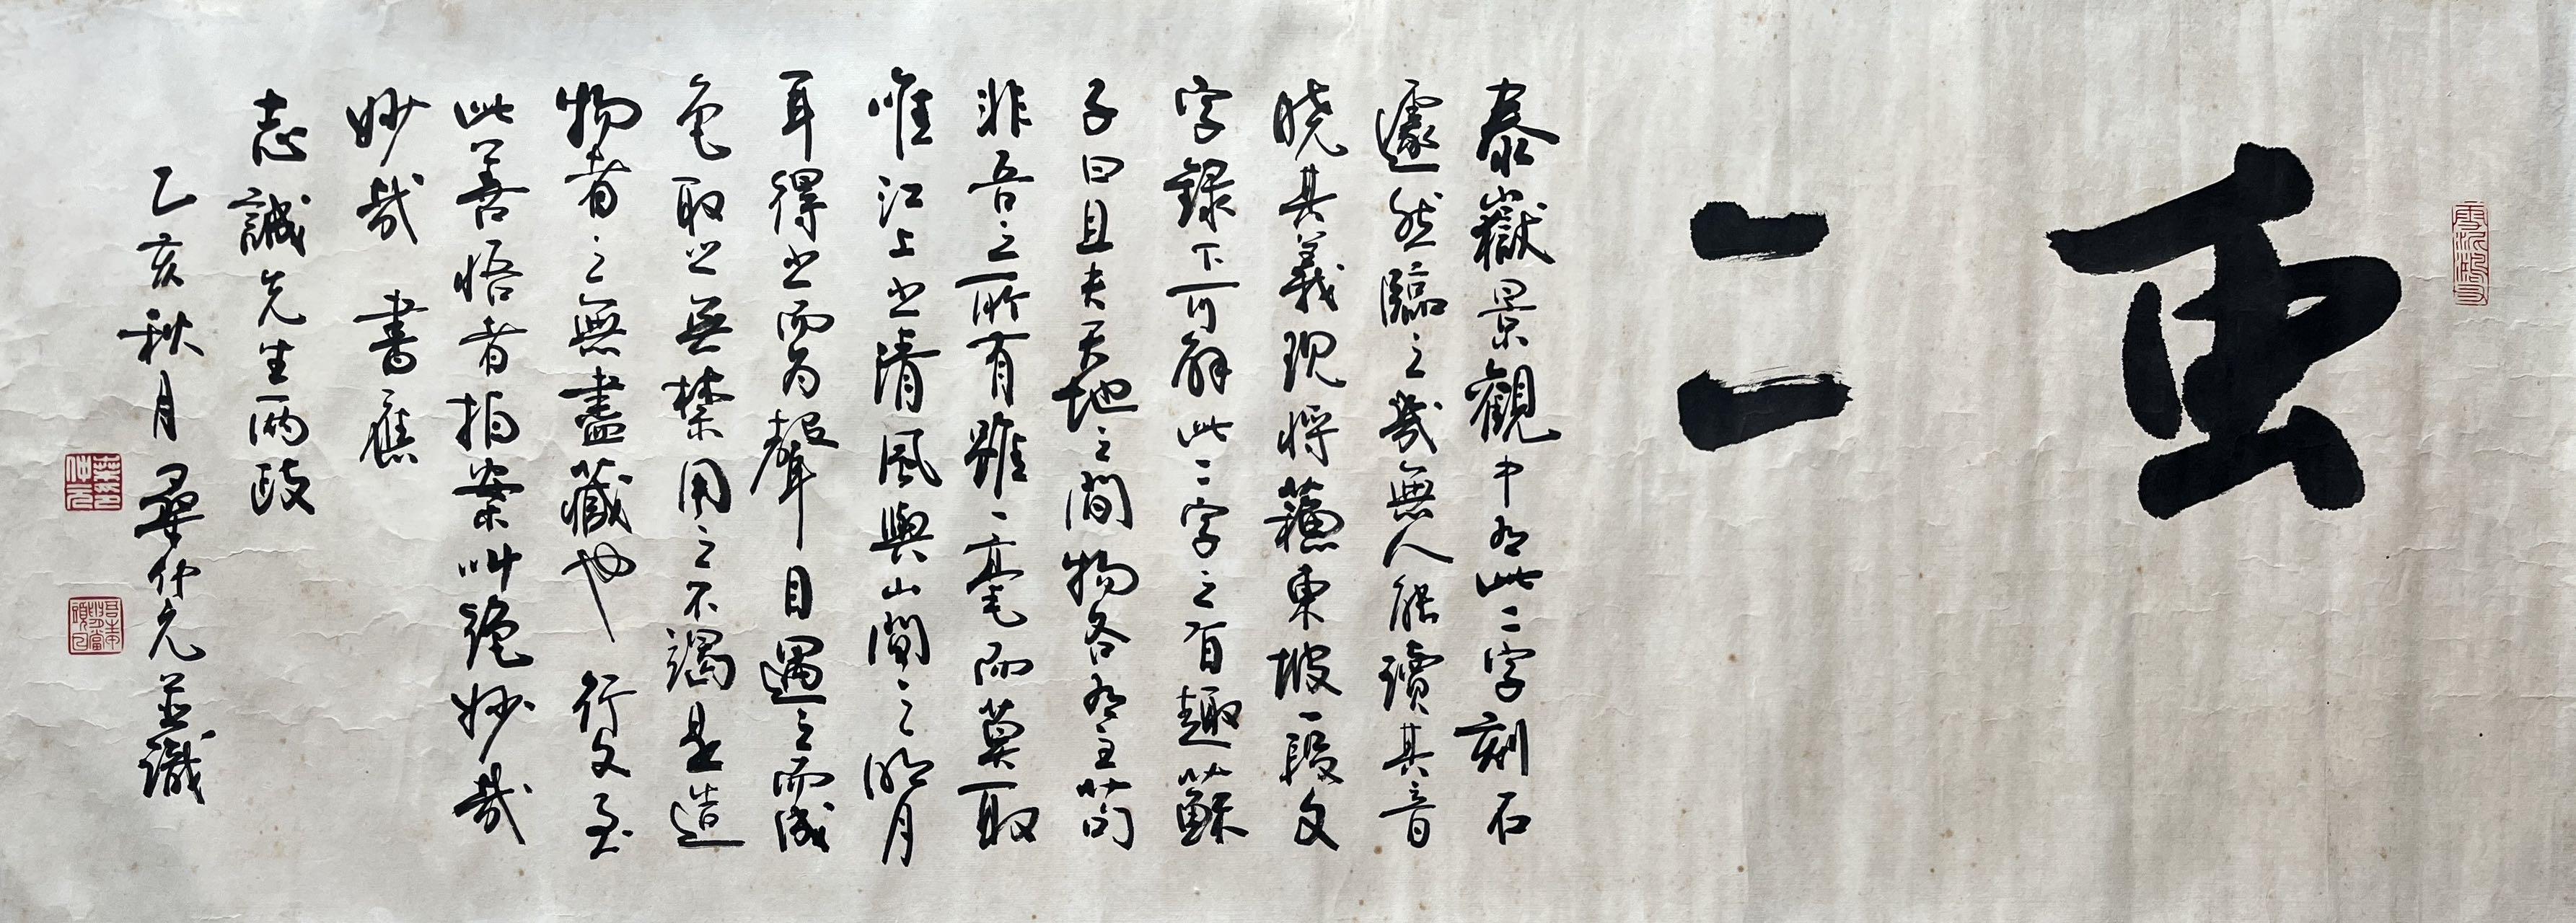 虫二
雪泥鴻爪
泰嶽景觀中有此二字刻石
遽然臨之幾無人能讀其音
曉其義現將蘇東坡一段文
字錄下可解此二字之旨趣蘇
子曰且夫天地之間物各有主苟
非吾之所有雖一毫而莫取
唯江上之清風與山間之明月
耳得之而為聲目遇之而成
色取之無禁用之不竭是造
物者之無盡藏也 行文至
此善悟者拍案叫絕妙哉
妙哉 書應
志誠先生兩政
乙亥秋月 仲元並識